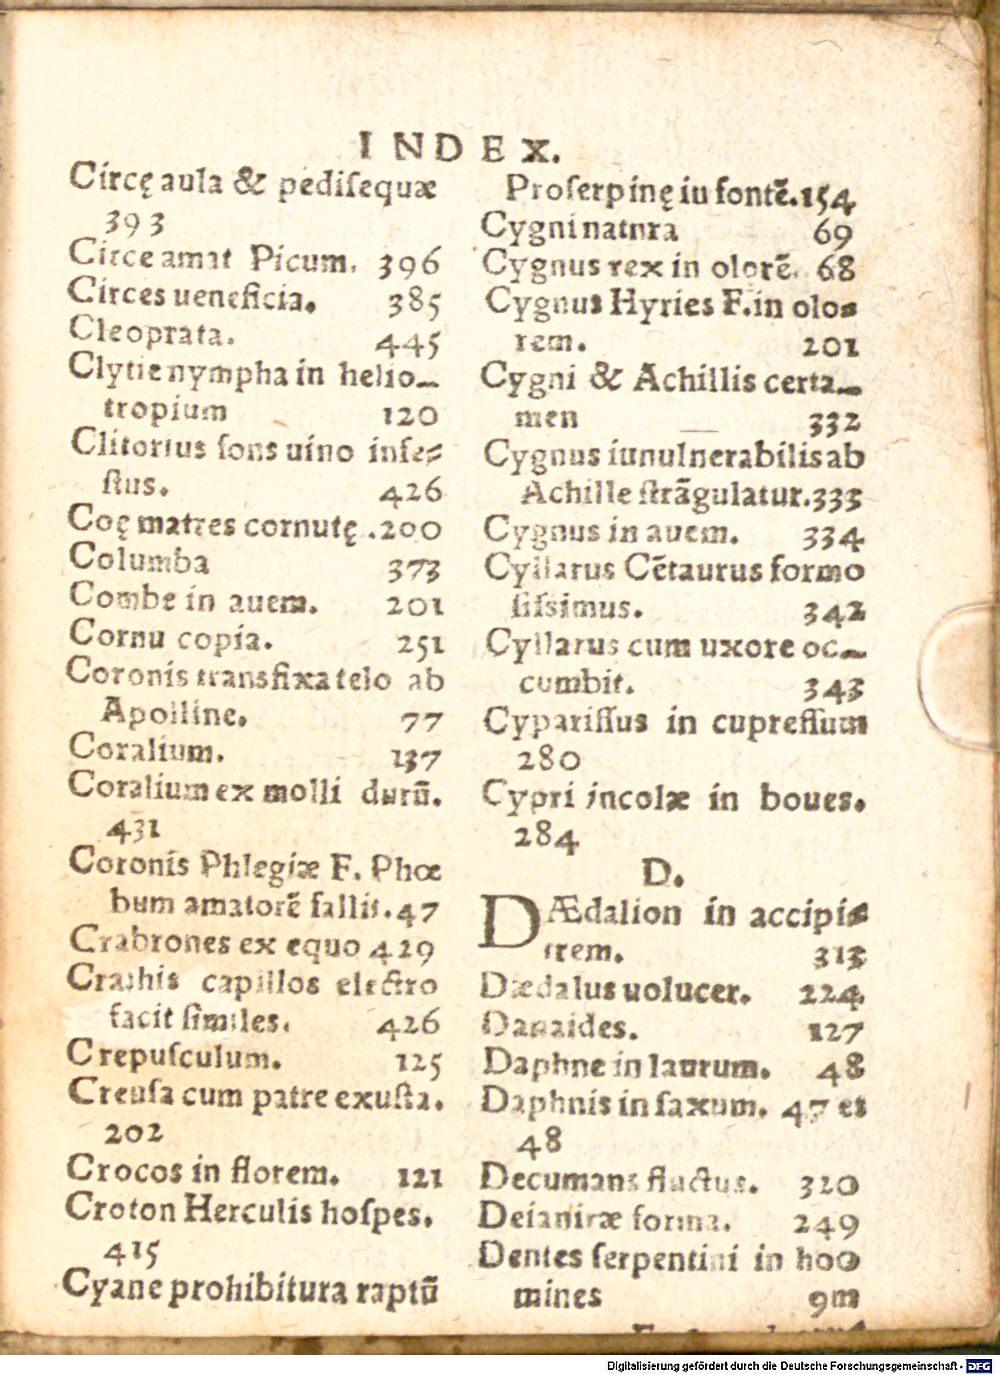 INDEX.
Circę aula & pediſequæ
393
Circe amat Picum. 396
Circes ueneficia. 385
Cleoprata. 445
Clytie nympha in helio-
tropium 120
Clitorius fons uino infe-
ſtus. 426
Coę matres cornutę. 200
Columba 373
Combe in auem. 201
Cornu copia. 251
Coronis transfixa telo ab
Apolline. 77
Coralium. 137
Coralium ex molli durũ.
431
Coronis Phlegiæ F. Phœ
bum amatorẽ fallit. 47
Crabrones ex equo 429
Crathis capillos electro
facit ſimiles. 426
Crepuſculum. 125
Creuſa cum patre exuſta.
202
Crocos in florem. 121
Croton Herculis hoſpes.
415
Cyane prohibitura raptũ
Proſerpinę iu fontẽ. 154
Cygni natura 69
Cygnus rex in olorẽ. 68
Cygnus Hyries F. in olo-
rem. 201
Cygni & Achillis certa-
men 332
Cygnus iunulnerabilis ab
Achille ſtrãgulatur. 333
Cygnus in auem. 334
Cyllarus Cẽtaurus formo
ſiſsimus. 342
Cyllarus cum uxore oc-
cumbit. 343
Cypariſſus in cupreſſum
280
Cypri incolæ in boues.
284
D.
DÆdalion in accipi-
trem. 313
Dædalus uolucer. 224
Danaides. 127
Daphne in laurum. 48
Daphnis in ſaxum. 47 et
48
Decumans fluctus. 320
Deianiræ forma. 249
Dentes ſerpentini in hoo
mines 9m
Digitalisierung gefördert durch die Deutsche Forschungsgemeinschaft - DFG